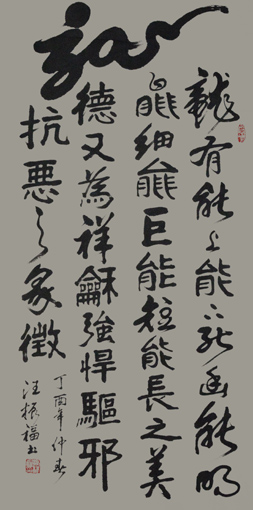 龍
龍有能上能下能幽能明
能細能巨能短能長之美
德又為祥龢強悍驅邪
抗惡之象徵
丁酉年仲春
汪振福書